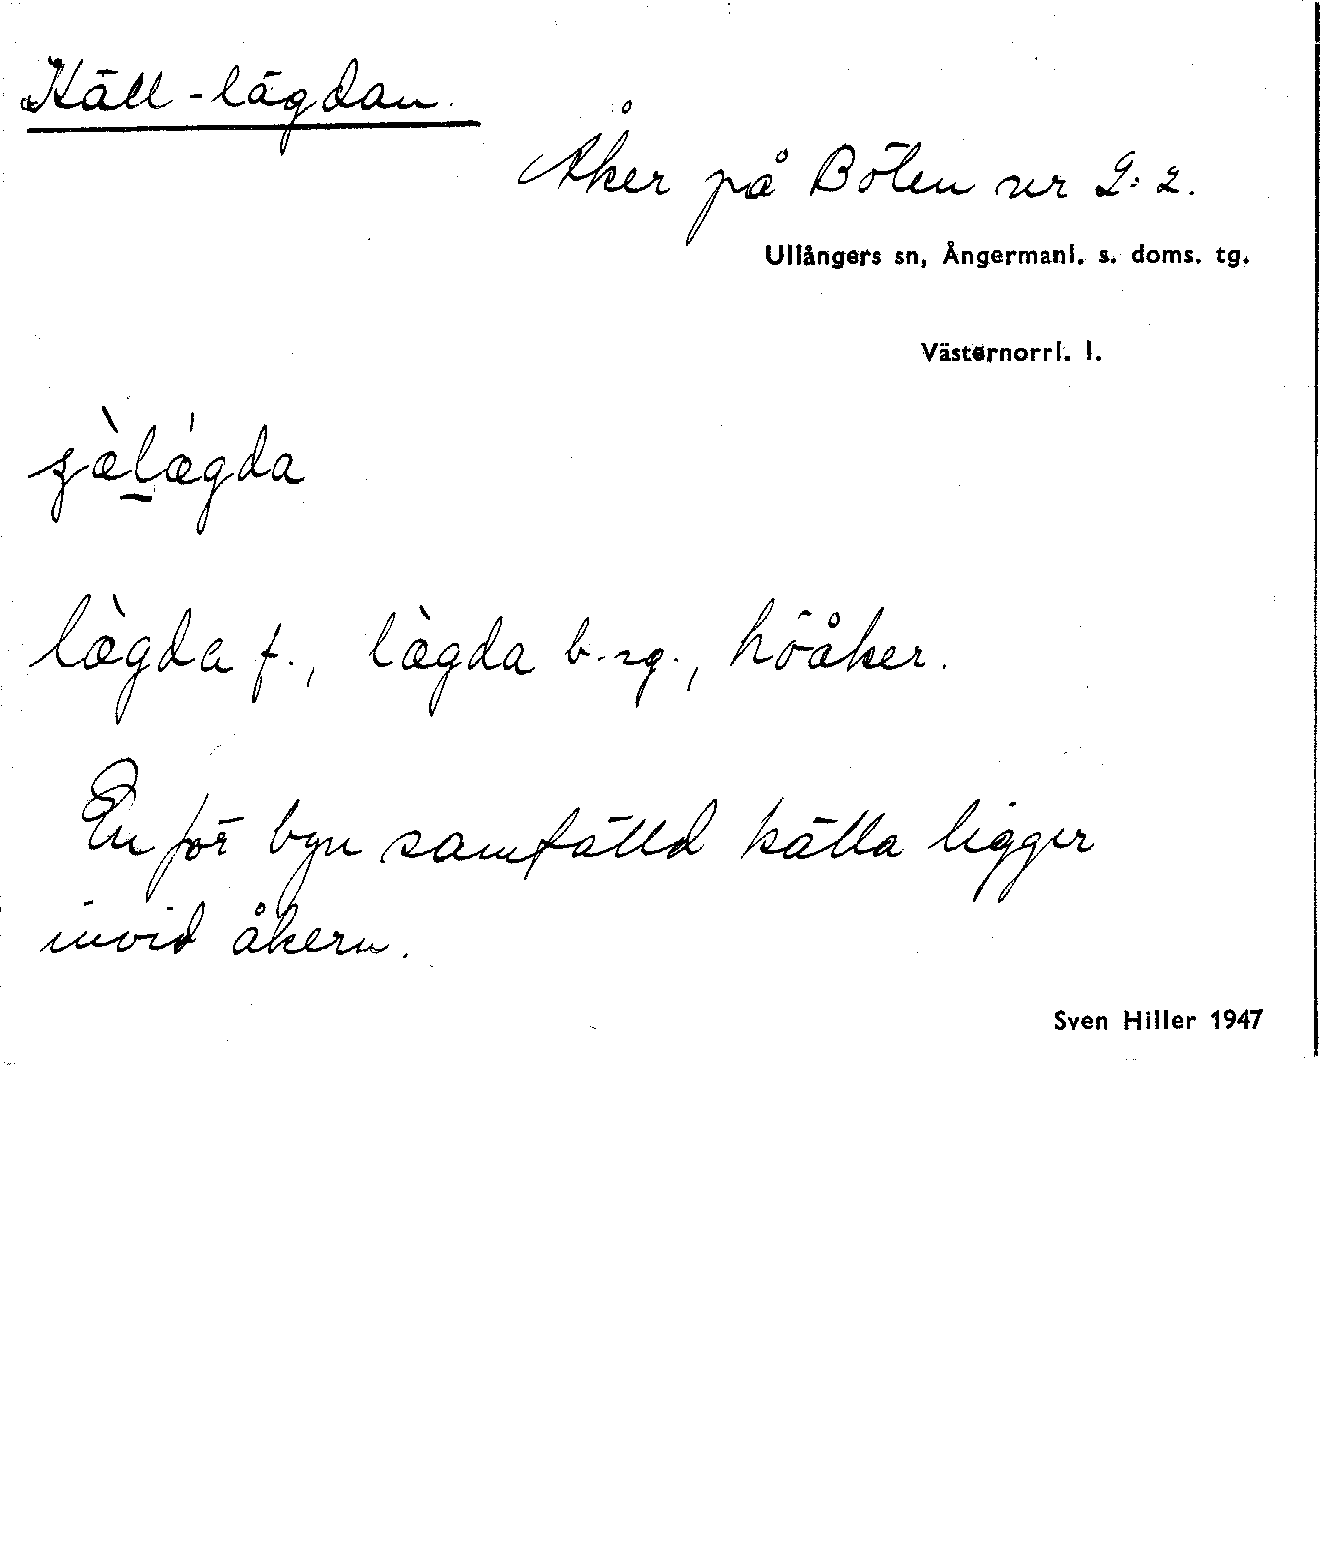 Käll-lägdan.
Åker på Bölen nr 2:2.
Ullångers sn, Ångermanl. s. doms. tg.
Västernorrl. l.
lægda f., lægda b. sg., höåker.
En för byn samfälld källa ligger
invid åkern.
Sven Hiller 1947